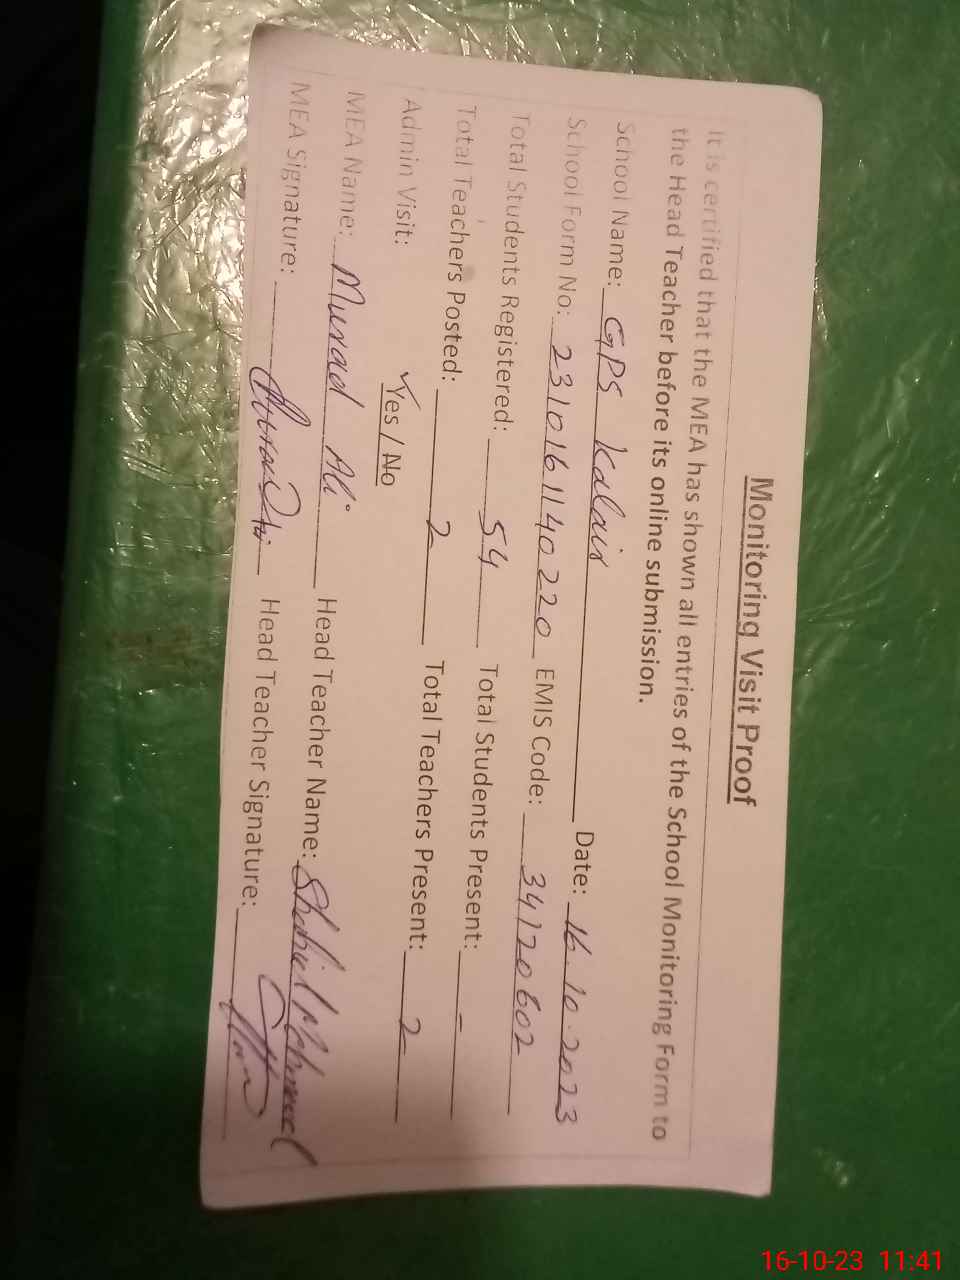 Monitoring Visit Proof
It is certified that the MEA has shown all entries of the School Monitoring Form to
the Head Teacher before its online submission.
School Name: GPS Kalair Date: 16.10.2023
School Form No: 2310161140220 EMIS Code: 34120602
Total Students Registered: 54 Total Students Present: -
Total Teachers Posted: 2 Total Teachers Present: 2
Admin Visit: ✓Yes / No
MEA Name: Murad Ali Head Teacher Name:
MEA Signature: Head Teacher Signature:
16-10-23 11:41